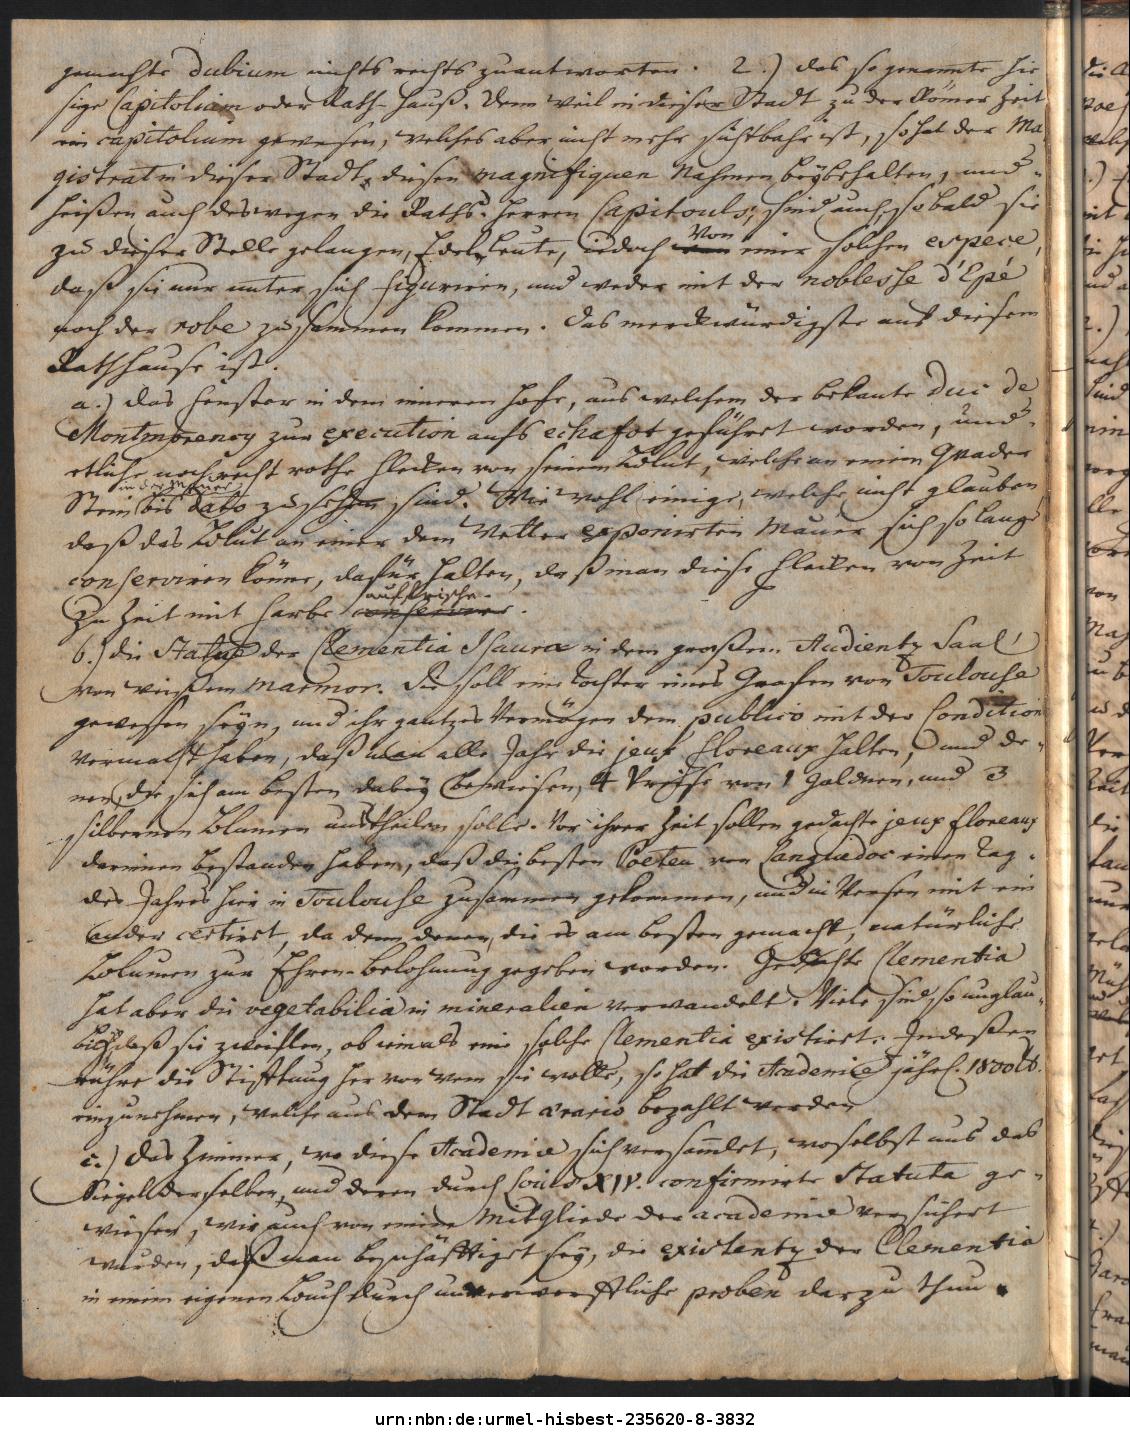 gemachte dubium nichts rechts zuantworten. 2.) das so genannte hie
sige Capitolium oder Rath-Hauß. Denn weil in dieser Stadt zu der Römer Zeit
ein capitolium gewesen, welches aber nicht mehr sichtbahr ist, so hat der Ma
gistrat in dieser Stadt, diesen magnifiquen Nahmen beÿbehalten, und
heißen auch deswegen die Raths-Herren Capitouls; sind auch, so bald sie
zu dieser Stelle gelangen, Edel-Leute, iedoch von einer solchen espece,
daß sie nur unter sich figuriren, und weder mit der noblesse d'Epé
noch der robe zusammen kommen. Das merckwürdigste auf diesem
Rathhause ist.
a.) das Fenster in dem inneren Hofe, aus welchem der bekante Duc de
Montmorency zur execution aufs echafot geführet worden, und
etliche noch recht rothe Flecken von seinem Blut, welche an einem Quader
in der Mauer
Stein bis dato zu sehen sind. Wie wohl einige, welche nicht glauben
daß das Blut an einer dem Wetter exponirten Mauer sich so lange
conserviren könne, dafür halten, daß man diese Flecken von Zeit
zu Zeit mit Farbe auffrische.
b.) die Statue der Clementia Isaura in dem großen Audientz Saal
von weißem marmor. Sie soll eine Tochter eines Grafen von Toulouse
gewesen seÿn, und ihr gantzes Vermögen dem publico mit der Condition
vermacht haben, daß man alle Jahr die jeux floreaux halten, und de-
nen, die sich am besten dabeÿ bewiesen, 4 Preise von 1 goldnen, und 3
silbernen Blumen austheilen solle. Vor ihrer Zeit sollen gedachte jeux floreaux
darinnen bestanden haben, daß die besten Poeten von Languedoc einen Tag
des Jahres hier in Toulouse zusammen gekommen, und in Versen mit ein
ander certiret, da denn denen, die es am besten gemacht, natürliche
Blumen zur Ehren-Belohnung gegeben worden. Gedachte Clementia
hat aber die vegetabilia in mineralien verwandelt. Viele sind so unglau-
big, daß sie zweiflen, ob iemals eine solche Clementia existiert. Indeßen
rühre die Stifftung her von wem sie wolle, so hat die Academie jährl. 1800 lb.
einzunehmen, welche aus dem Stadt ærario bezahlt werden
c.) das Zimmer, wo diese Academie sich versam̅let, woselbst uns das
Siegel derselben, und deren durch Louis XIV. confirmirte Statuta ge-
wiesen, wir auch von einem Mitgliede der academie versichert
wurden, daß man beschäfftiget seÿ, die existentz der Clementia
in einem eigenen Buch durch unverwerffliche proben darzu thun.
urn:nbn:de:urmel-hisbest-235620-8-3832